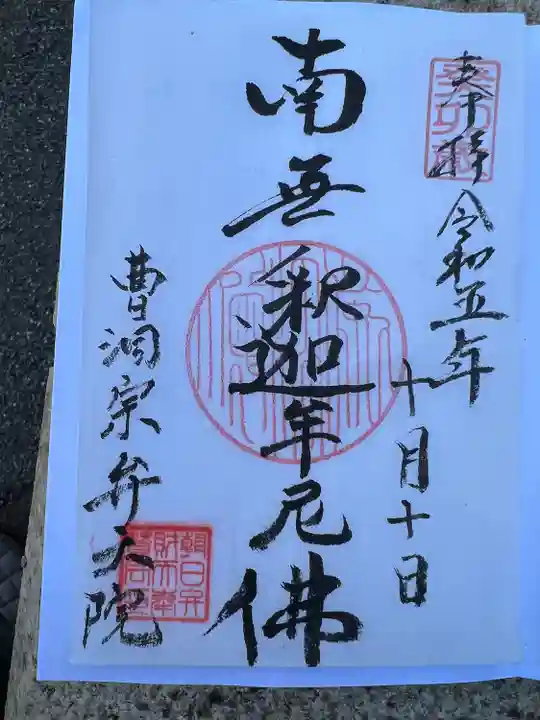 奉拝 令和五年 十月十日
南無釈迦牟尼佛
曹洞宗弁天院
朝日弁
財天奉